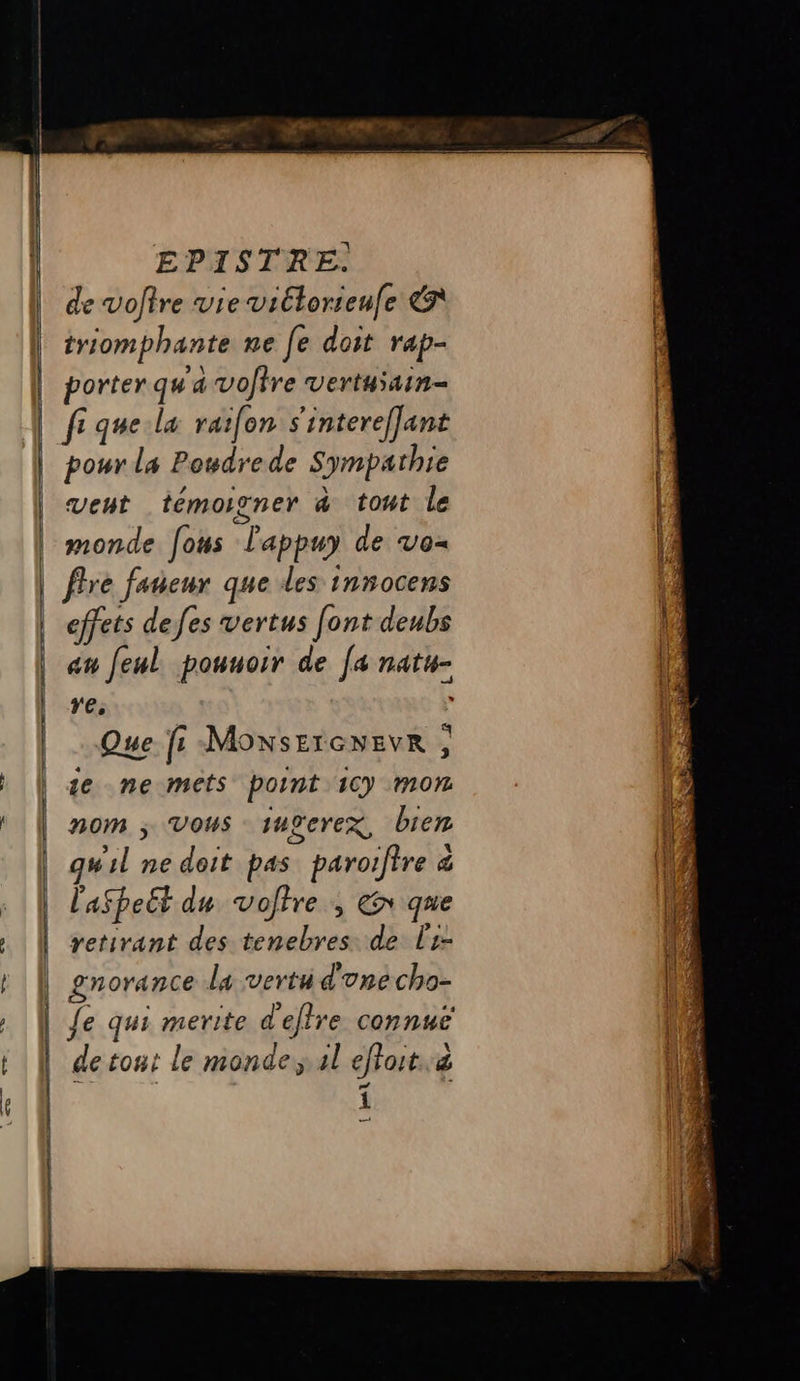 EPISTRE.
de voſtre vie victorieuſe &
triomphante ne ſe doit rap-
porter qu'à voſtre vertu; ain-
ſi que la raiſon s'intereſſant
pour la Poudre de Sympathie
veut témoigner à tout le
monde ſous l'appuy de vo-
ſtre faueur que les innocens
effets de ſes vertus ſont deubs
au ſeul pouuoir de ſa natu-
re.
Que ſi MONSEIGNEVR,
ie ne mets point icy mon
nom, vous iugerez bien
qu'il ne doit pas paroiſtre à
l'aſpect du voſtre, & que
retirant des tenebres de l'i-
gnorance la vertu d'vne cho-
ſe qui merite d'eſtre connuë
de tout le monde, il eſtoit à
i